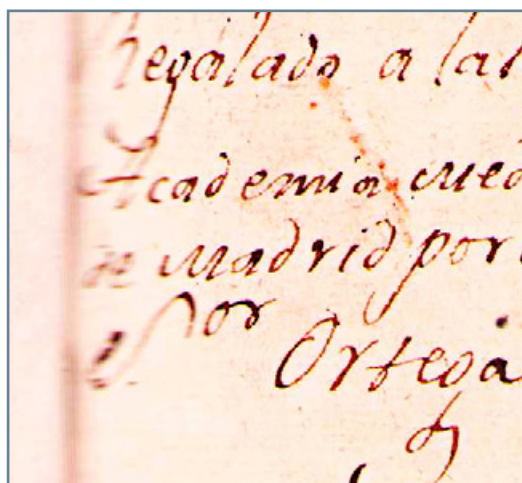 Regalado a la
Academia Med
de Madrid por
Sor
Ortega